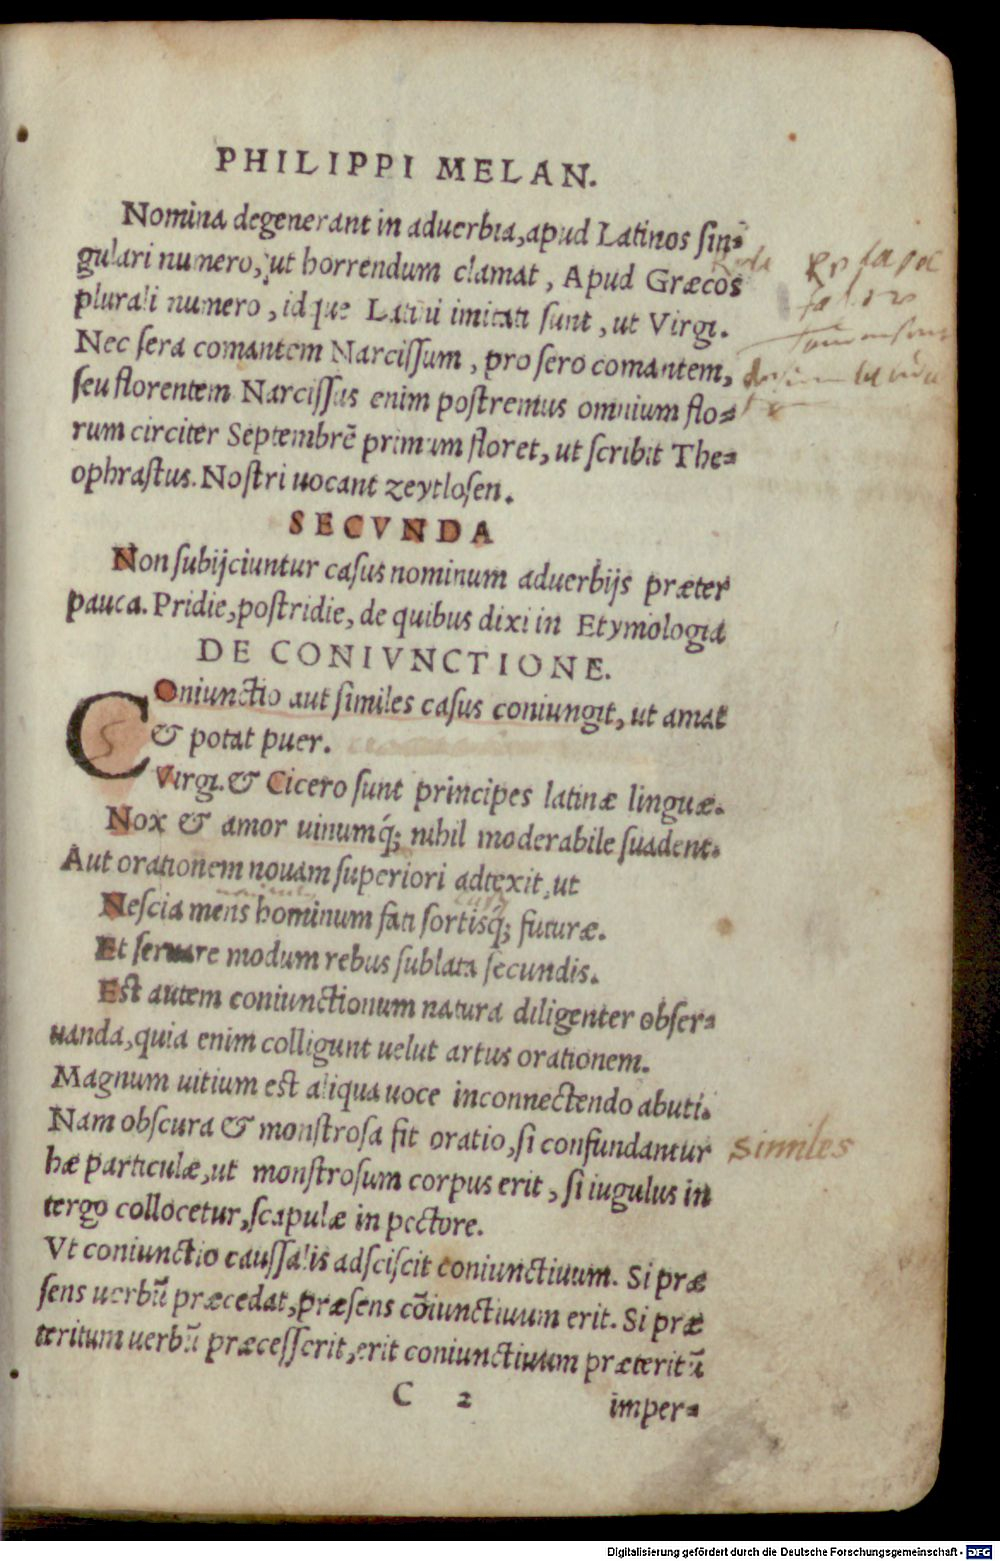 PHILIPPI MELAN.
Nomina degenerant in aduerbia, apud Latinos sin⸗
gulari numero, ut horrendum clamat, Apud Græcos
plurali numero, idque Latini imitati sunt, ut Virgi.
Nec sera comantem Narcissum, pro sero comantem,
seu florentem Narcissus enim postremus omnium flo⸗
rum circiter Septembrē primum floret, ut scribit The⸗
ophrastus. Nostri uocant zeytlosen.
SECVNDA
Non subijciuntur casus nominum aduerbijs præter
pauca. Pridie, postridie, de quibus dixi in Etymologia
DE CONIVNCTIONE.
Coniunctio aut similes casus coniungit, ut amat
& potat puer.
Virgi. & Cicero sunt principes latinæ linguæ.
Nox & amor uinumq́; nihil moderabile suadent.
Aut orationem nouam superiori adtexit, ut
Nescia mens hominum fati sortisq́; futuræ.
Et seruare modum rebus sublata secundis.
Est autem coniunctionum natura diligenter obser⸗
uanda, quia enim colligunt uelut artus orationem.
Magnum uitium est aliqua uoce inconnectendo abuti.
Nam obscura & monstrosa fit oratio, si confundantur
similes
hæ particulæ, ut monstrosum corpus erit, si iugulus in
tergo collocetur, scapulæ in pectore.
Vt coniunctio caussalis adsciscit coniunctiuum. Si præ
sens uerbū præcedat, præsens cōiunctiuum erit. Si præ
teritum uerbū præcesserit, erit coniunctiuum præteritū
C 2 imper⸗
Digitalisierung gefördert durch die Deutsche Forschungsgemeinschaft - DFG